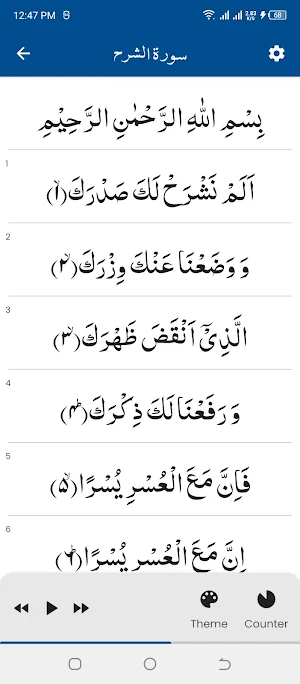 12:47 PM 2.83 K/s 68
سورة الشرح
بِسْمِ اللّٰهِ الرَّحْمٰنِ الرَّحِيْمِ
1
اَلَمْ نَشْرَحْ لَكَ صَدْرَكَ(ۙ۱)
2
وَ وَضَعْنَا عَنْكَ وِزْرَكَ(ۙ۲)
3
الَّذِیْۤ اَنْقَضَ ظَهْرَكَ(ۙ۳)
4
وَ رَفَعْنَا لَكَ ذِكْرَكَ(ؕ۴)
5
فَاِنَّ مَعَ الْعُسْرِ یُسْرًا(ۙ۵)
6
اِنَّ مَعَ الْعُسْرِ یُسْرًا(ؕ۶)
Theme Counter